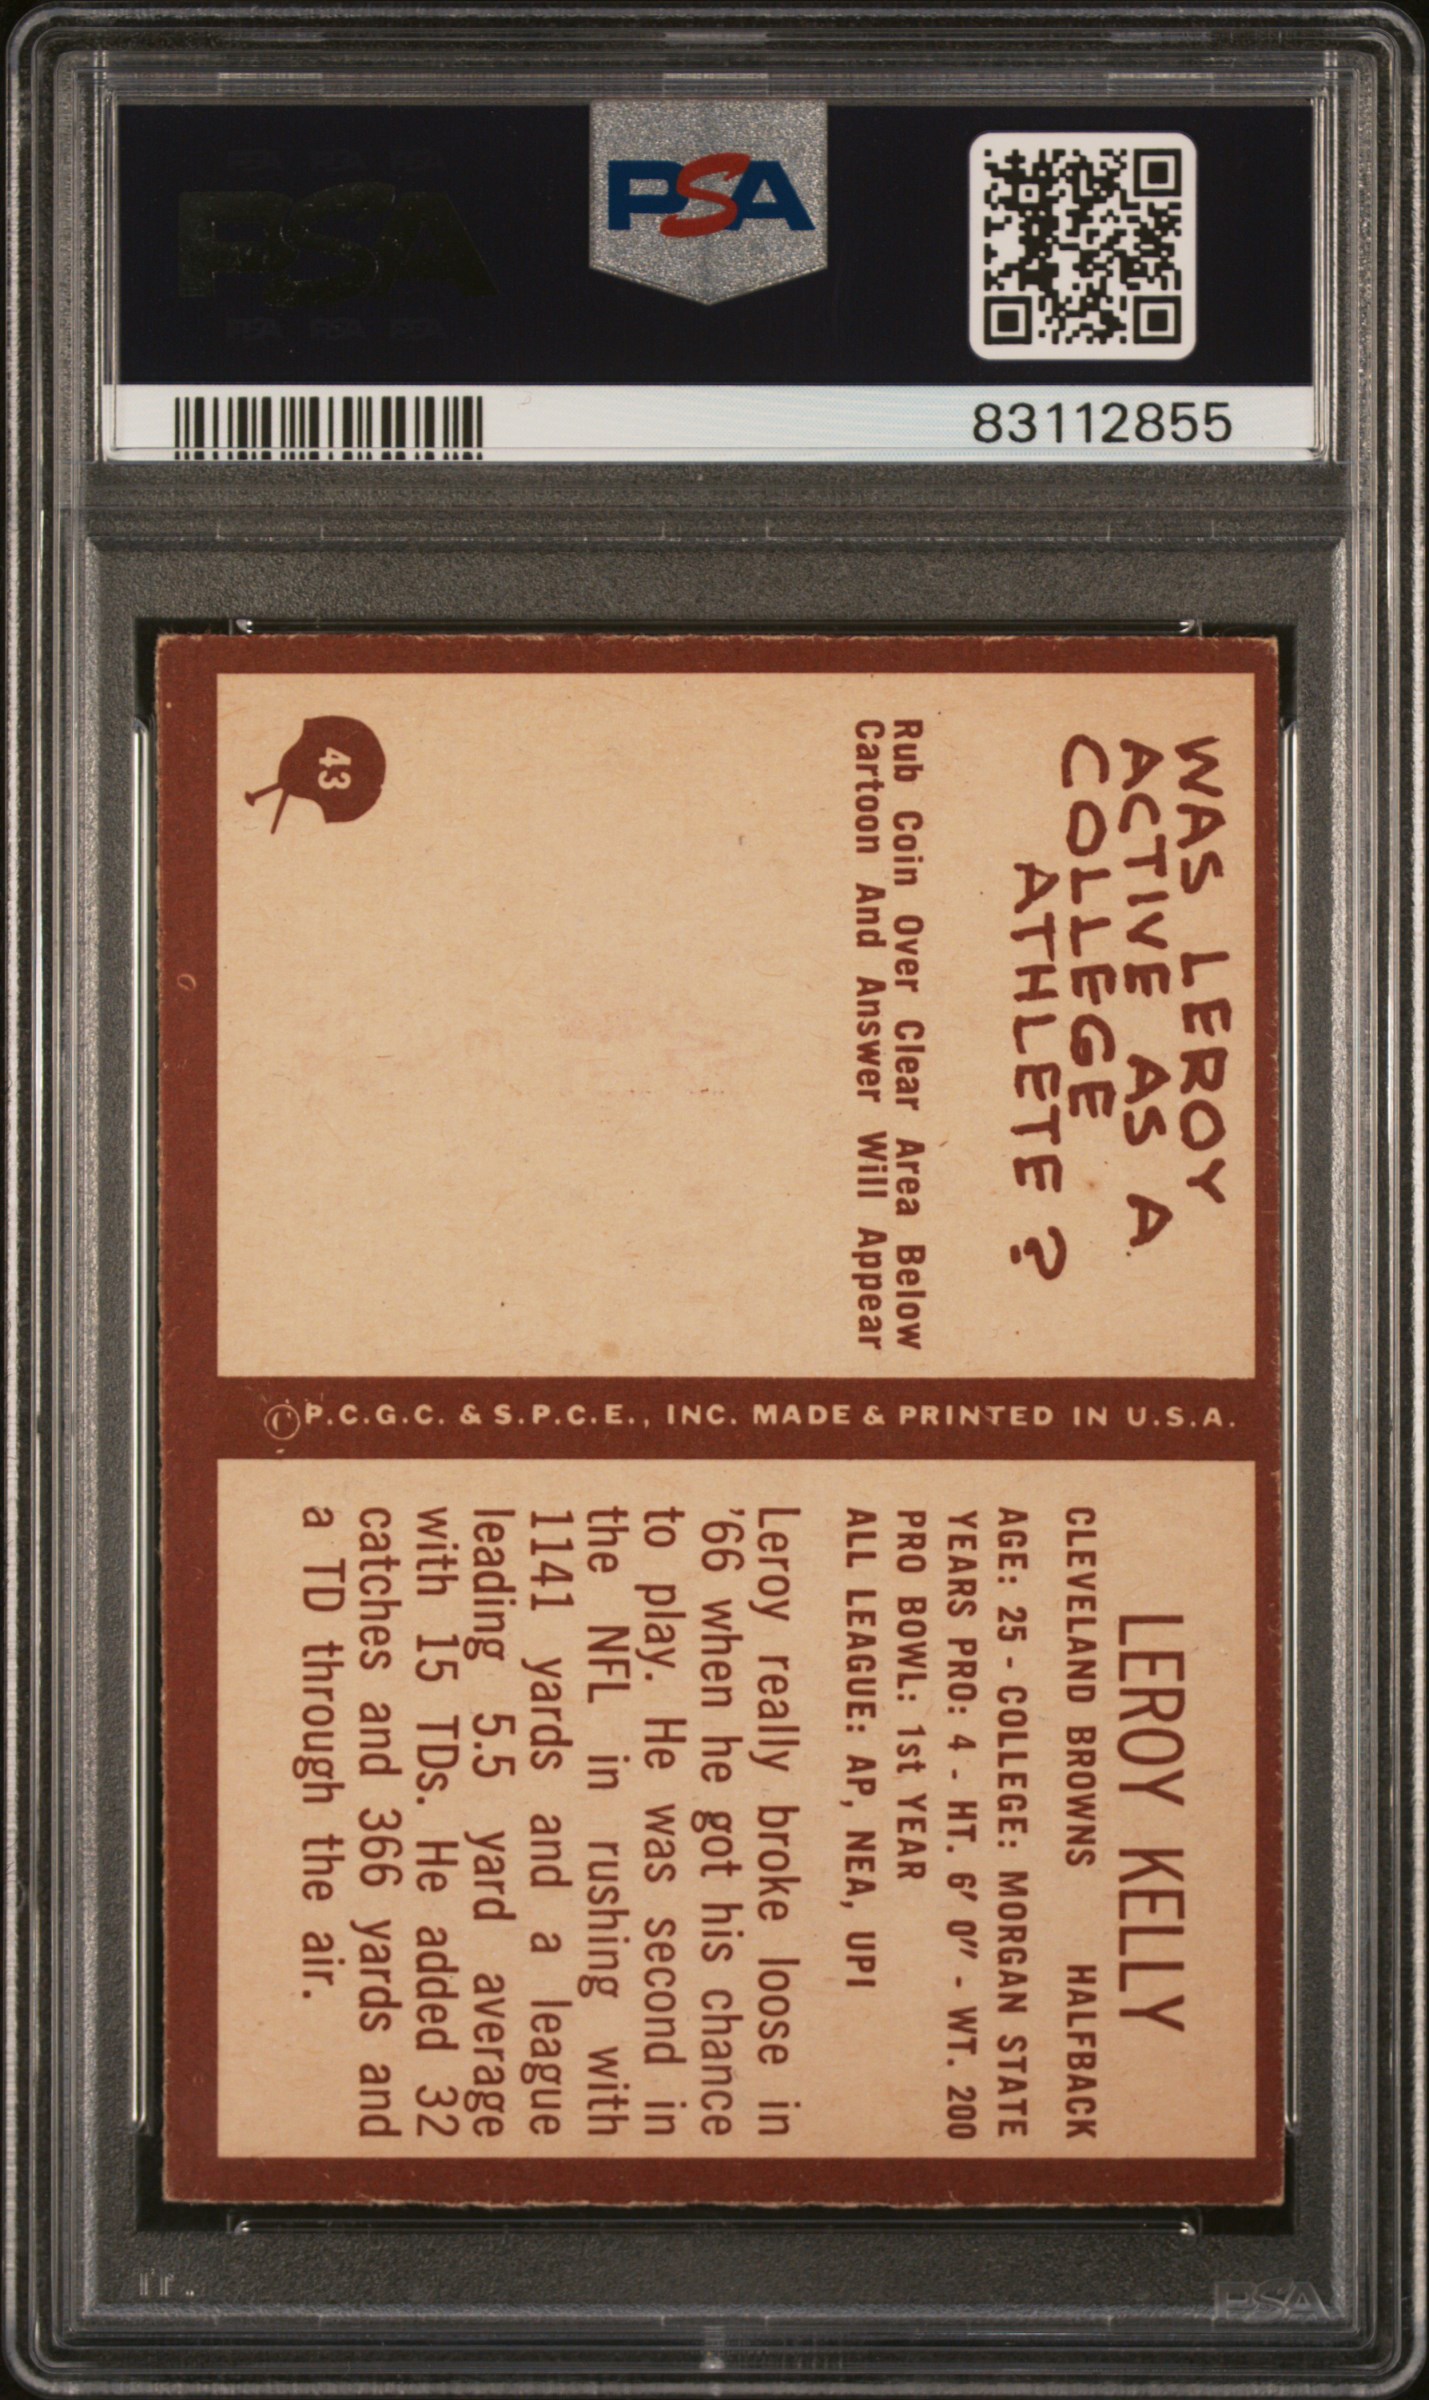 PSA
PSA
83112855
WAS LEROY
ACTIVE AS A
COLLEGE
ATHLETE ?
Rub Coin Over Clear Area Below
Cartoon And Answer Will Appear
43
© P.C.G.C. & S.P.C.E., INC. MADE & PRINTED IN U.S.A.
LEROY KELLY
CLEVELAND BROWNS HALFBACK
AGE: 25 - COLLEGE: MORGAN STATE
YEARS PRO: 4 - HT. 6' 0" - WT. 200
PRO BOWL: 1st YEAR
ALL LEAGUE: AP, NEA, UPI
Leroy really broke loose in
'66 when he got his chance
to play. He was second in
the NFL in rushing with
1141 yards and a league
leading 5.5 yard average
with 15 TDs. He added 32
catches and 366 yards and
a TD through the air.
PSA